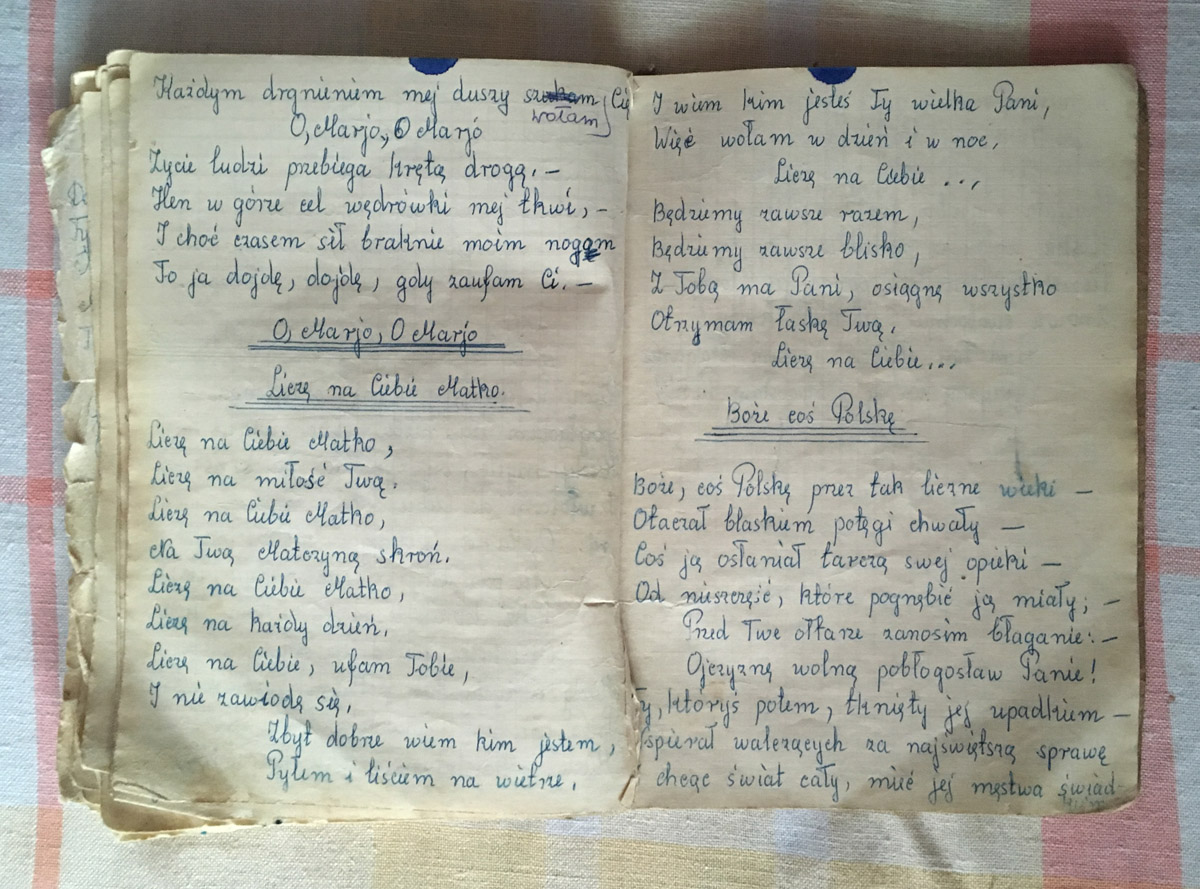 Każdym drgnieniem mej duszy szukam Cię
wołam
O, Marjo, O Marjó
Życie ludzi przebiega krętą drogą. –
Hen w górze cel wędrówki mej tkwi, –
I choć czasem sił braknie moim nogom
To ja dojdę, dojdę, gdy zaufam Ci. –
O, Marjo, O Marjo
Liczę na Ciebie Matko.
Liczę na Ciebie Matko,
Liczę na miłość Twą.
Liczę na Ciebie Matko,
Na Twą Matczyną skroń.
Liczę na Ciebie Matko,
Liczę na każdy dzień.
Liczę na Ciebie, ufam Tobie,
I nie zawiodę się.
Zbyt dobrze wiem kim jestem,
Pyłem i liściem na wietrze.
I wiem kim jesteś Ty wielka Pani,
Więć wołam w dzień i w noc.
Liczę na Ciebie ...
Będziemy zawsze razem,
Będziemy zawsze blisko,
Z Tobą ma Pani, osiągnę wszystko
Otrzymam łaskę Twą.
Liczę na Ciebie...
Boże coś Polskę
Boże, coś Polskę przez tak liczne wieki –
Otaczał blaskiem potęgi chwały –
Coś ją osłaniał tarczą swej opieki –
Od nieszczęść, które pognębić ją miały; –
Przed Twe ołtarze zanosim błaganie: –
Ojczyznę wolną pobłogosław Panie!
Ty, któryś potem, tknięty jej upadkiem –
Wspierał walczących za najświętszą sprawę
chcąc świat cały, mieć jej męstwa świad-